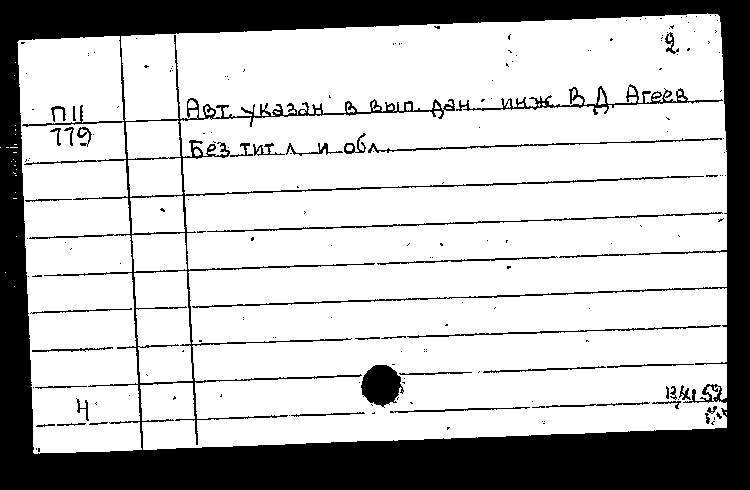 2.
П 11
779
Авт. указан в вып. дан.: инж. В.Д. Агеев
Без тит. л. и обл.
4
52